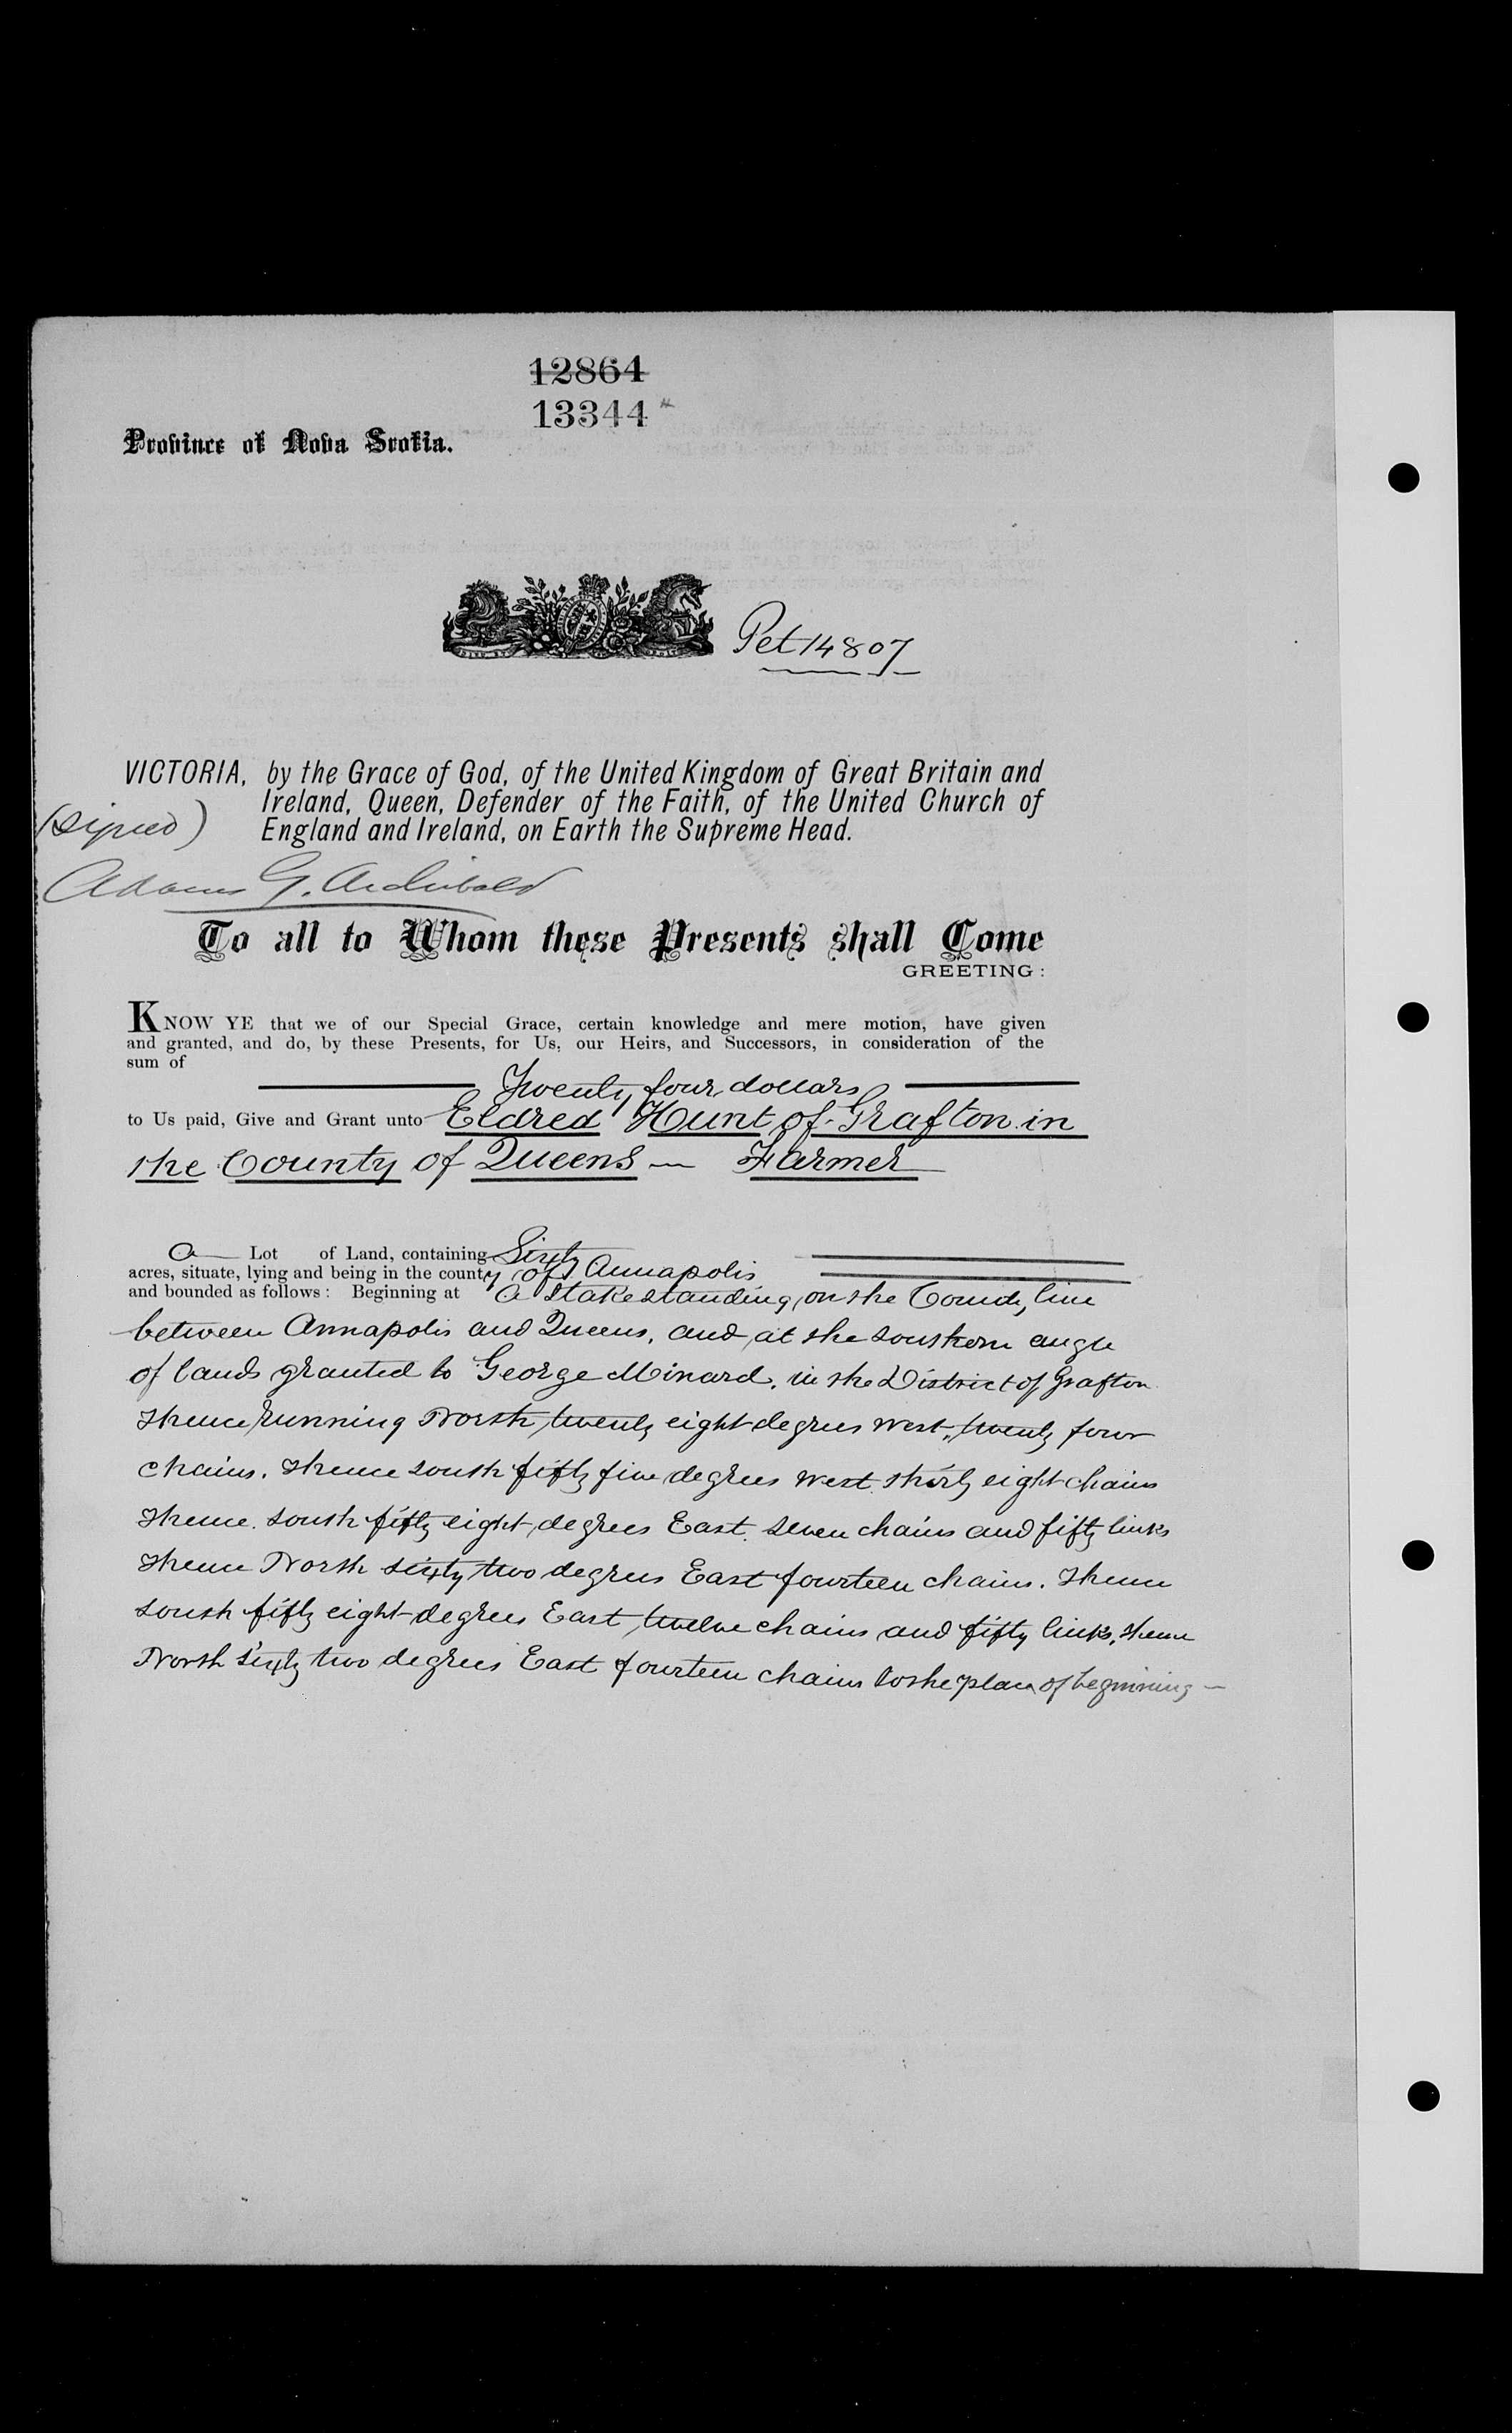 12864
13344
Province of Nova Scotia.
Pet 14807
VICTORIA, by the Grace of God, of the United Kingdom of Great Britain and
Ireland, Queen, Defender of the Faith, of the United Church of
(Signed) England and Ireland, on Earth the Supreme Head.
Adams G. Archibald
To all to Whom these Presents shall Come
GREETING:
KNOW YE that we of our Special Grace, certain knowledge and mere motion, have given
and granted, and do, by these Presents, for Us, our Heirs, and Successors, in consideration of the
sum of
Twenty four dollars
to Us paid, Give and Grant unto Eldred Hunt of Grafton in
the County of Queens — Farmer
a Lot of Land, containing Sixty
acres, situate, lying and being in the county of Annapolis
and bounded as follows: Beginning at a Stake standing on the County line
between Annapolis and Queens, and at the southern angle
of lands granted to George Minard, in the District of Grafton
thence running North twenty eight degrees West, twenty four
chains. thence south fifty five degrees West thirty eight chains
thence south fifty eight degrees East seven chains and fifty links
thence North sixty two degrees East fourteen chains. thence
south fifty eight degrees East, twelve chains and fifty links, thence
North sixty two degrees East fourteen chains to the place of beginning —